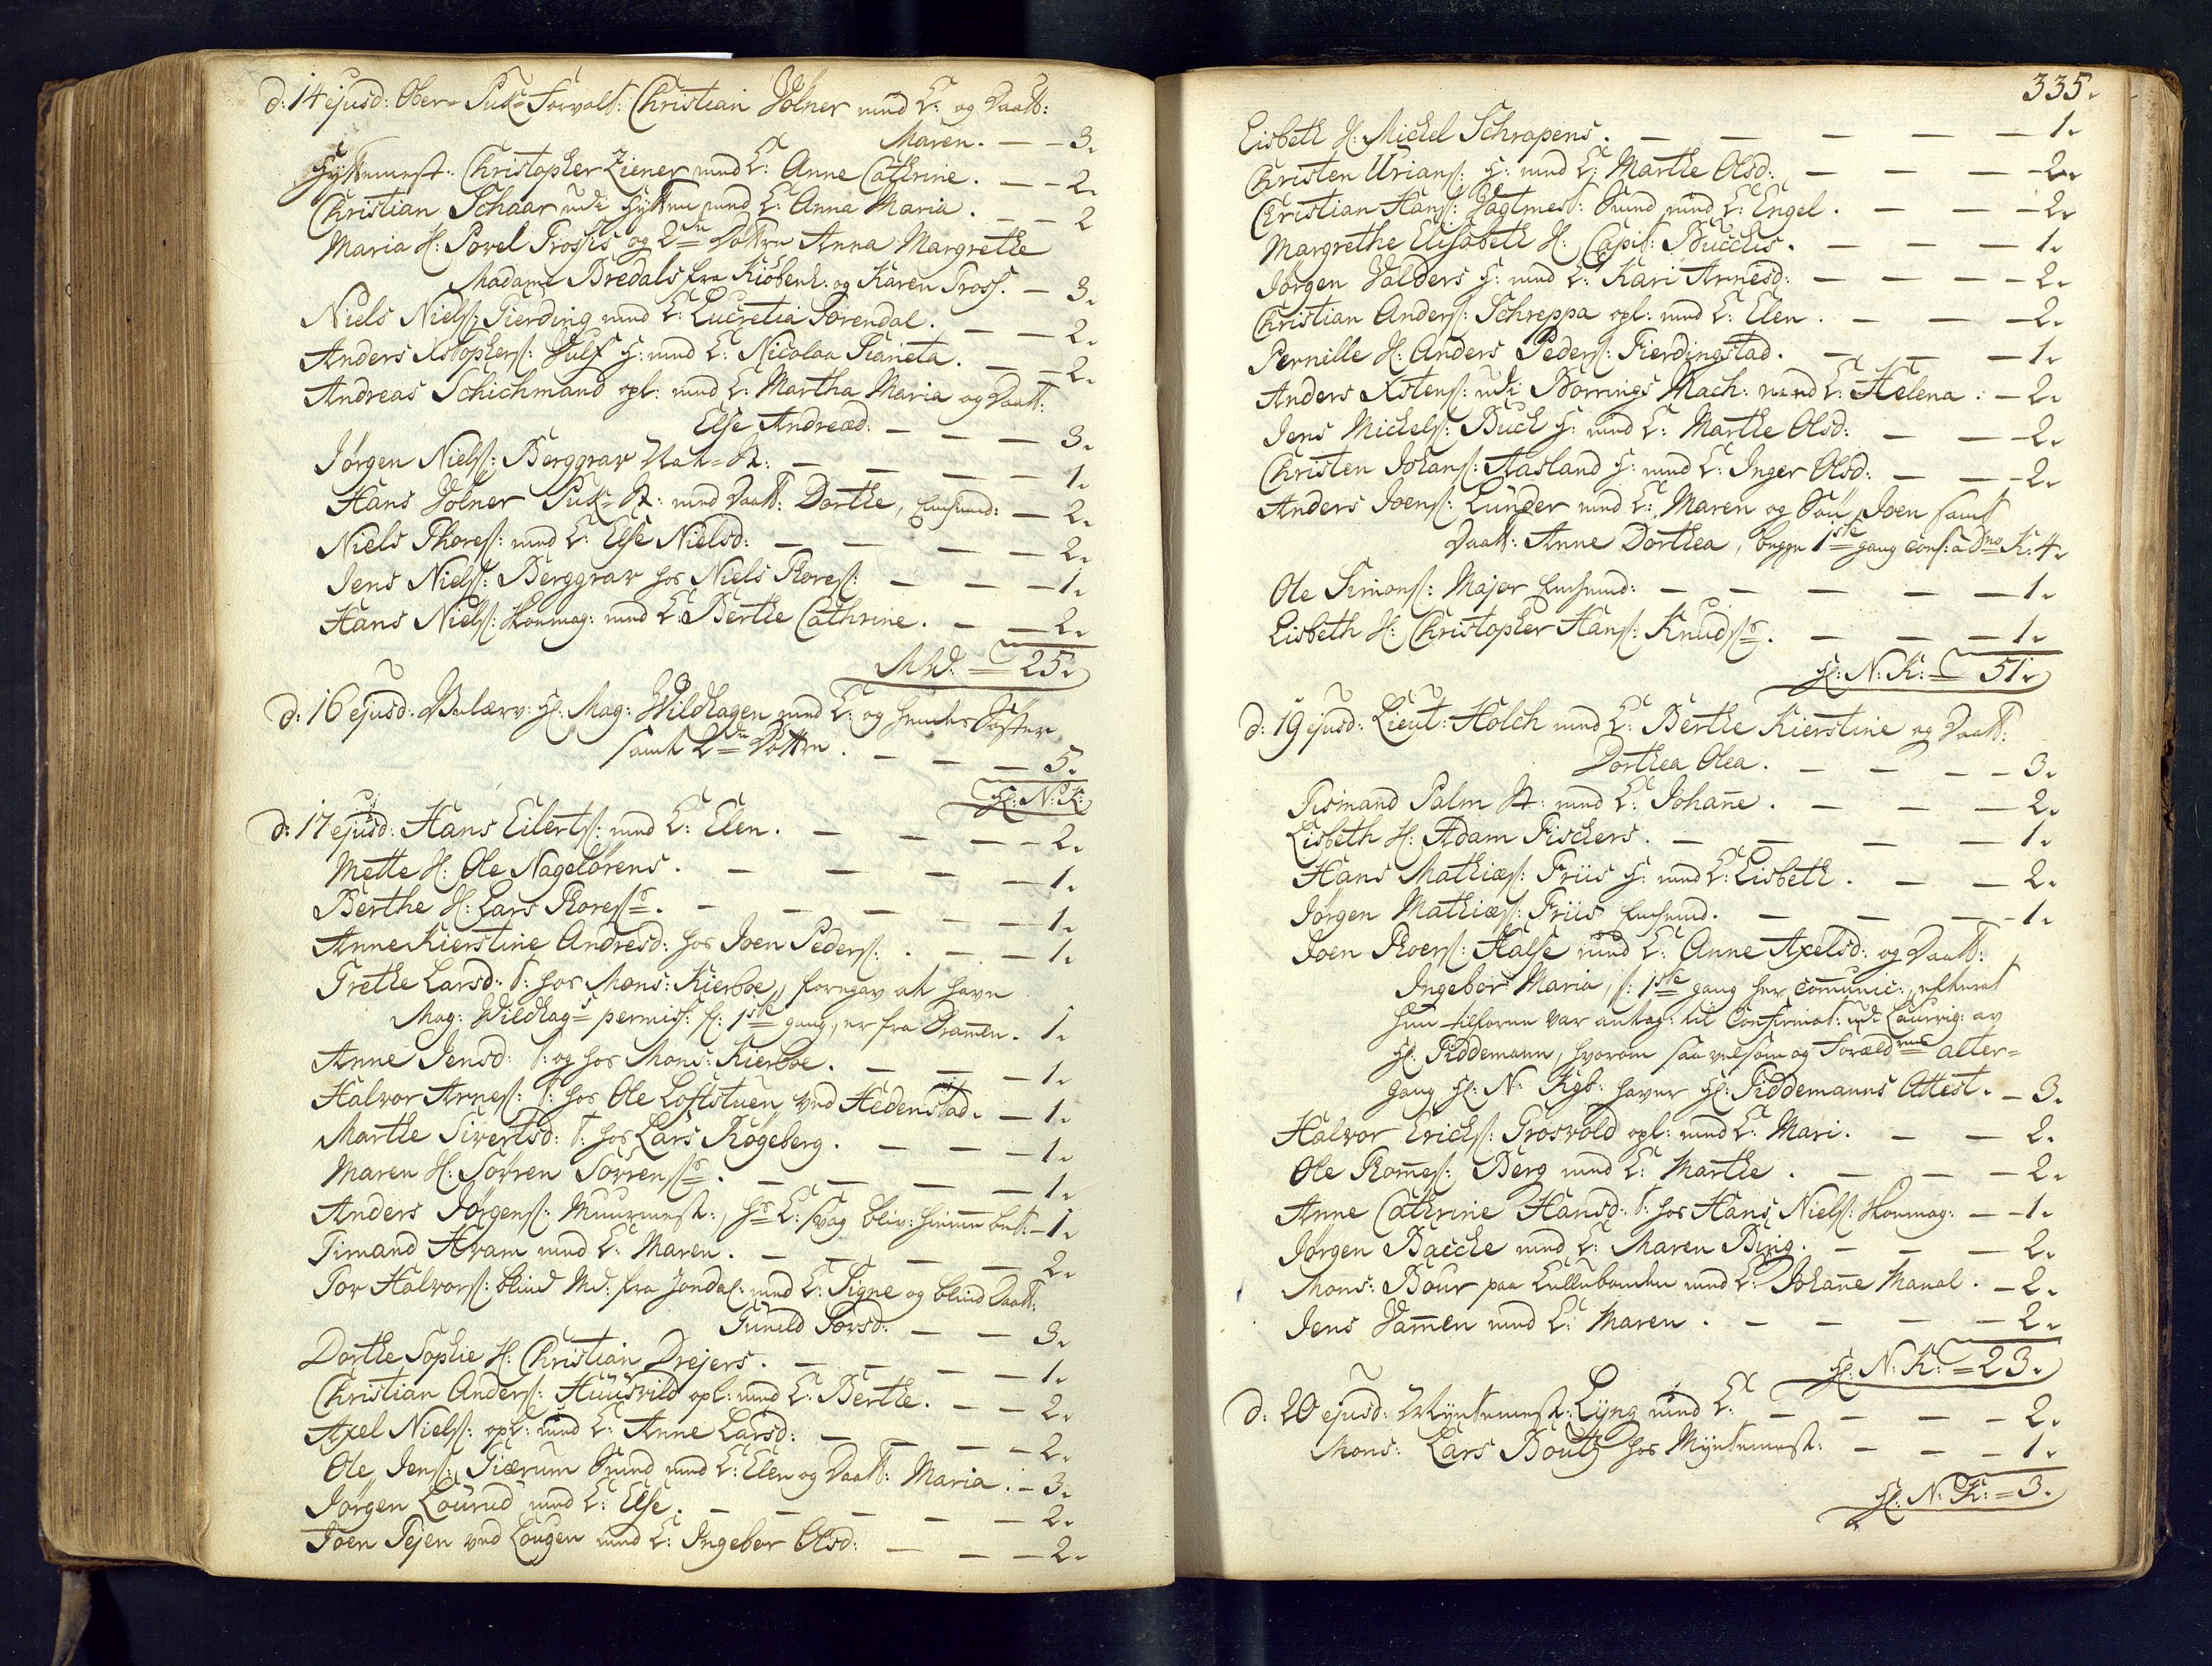 d: 14 ejusd: Ober- Stik- Forvalt: Christian Volner med K: og Daatt:
Maren. — — 3.
Hyttemest: Christopher Ziener med K: Anne Cathrine. — — 2.
Christian Schaar udi Hytten med K: Anna Maria. — — 2
Maria H: Povel Prosis og 2de Døttre Anna Margrethe
Madame Bredals fra Kiøbenh: og Karen Pros. — 3.
Niels Niels: Gierding med K: Lucretia Sorendal. — — 2.
Anders Xstophers: Wulf H: med K: Nicolaa Pianeta. — — 2.
Andreas Schichmand opl: med K: Martha Maria og Daatt:
Else Andread: — — — 3.
Jørgen Niels: Berggrav Nat- St: — — — — 1.
Hans Volner Stik- St: med Daatt: Dorthe, — 2.
Niels Thores: med K: Else Nielsd: — — — — 2.
Jens Niels: Berggrav hos Niels Thores: — — — 1.
Hans Niels: med K: Berthe Cathrine. — — 2.
Md. = 25.
d: 16 ejusd: Hr. Mag: Wildhagen med K: og hendes Søster
samt 2de Døttre. — — — 5.
Hr: N: K:
d: 17 ejusd: Hans Eilerts: med K: Elen. — — — — 2.
Mette H: Ole Nagelørens. — — — — 1.
Berthe H: Lars Thores — — — — 1.
Anne Kierstine Andresd: hos Joen Peders: . — — 1.
Grethe Larsd: T: hos Mons: Kierboe, foregav at have
Mag: Wildhags permis: H: 1ste gang, er fra Dramen. 1.
Anne Jensd: T: og hos Mons: Kierboe. — — — 1.
Halvor Arnes: T: hos Ole Loftstuen ved Hedenstad. — 1.
Marthe Sivertsd: T: hos Lars Røgeberg. — — — 1.
Maren H: Søfren Sørrens — — — — 1.
Anders Jørgens: Muurmest:, Hs K: svag bliv: hiemme bet: — 1.
Timand Hvam med K: Maren. — — — — 2.
Tor Halvors: blind Md: fra Jondal: med K: Signe og blind Daatt:
Gunild Torsd: — — 3.
Dorthe Sophie H: Christian Drejers. — — — — 1.
Christian Anders: Huusvild opl: med K: Berthe. — — 2.
Axel Niels: opl: med K: Anne Larsd: — — — 2.
Ole Jens: Giærum Svend med K: Elen og Daatt: Maria. — 3.
Jørgen Lourud med K: Else. — — — — 2.
Joen Pejen ved Lougen med K: Ingebor Olsd: — — — 2.
335.
Lisbeth H: Michel Schrapens. — — — — — 1.
Christen Urians: H: med K: Marthe Olsd: — — — 2.
Christian Hans: Vagtmest: Svend med K: Engel. — — — 2.
Margrethe Elisabeth H: Capit: Bucchis. — — — 1.
Jørgen Valders H: med K: Kari Arnesd: — — — — 2.
Christian Anders: Schreppa opl: med K: Elen. — — — 2.
Pernille H: Anders Peders: Fierdingstad. — — — 1.
Anders Xstens: udi Borrings Mach: med K: Helena. — 2.
Jens Michels: Buch H: med K: Marthe Olsd: — — — 2.
Christen Johans: Aasland H: med K: Inger Olsd: — — — 2.
Anders Joens: Lunder med K: Maren og Søn Joen samt
Daatt: Anne Dorthea, begge 1ste gang conf: a Dno K. 4.
Ole Simons: Major — — — — — 1.
Lisbeth H: Christopher Hans: Knuds — — — 1.
Hr: N: K: = 51.
d: 19 ejusd: Lieut: Holch med K: Berthe Kierstine og Daatt:
Dorthea Olea. — — — — 3.
Tismand Palm St: med K: Johanne. — — — — 2.
Lisbeth H: Adam Fischers. — — — — 1.
Hans Mathias: Friis H: med K: Lisbeth. — — — 2.
Jørgen Mathias: Friis — — — — 1.
Joen Roers: Halse med K: Anne Axelsd: og Daatt:
Ingebor Maria, H: 1ste gang her comunic:, efterat
hun tilforne var antag: til Confirmat: udi Laurvig: av
Hr. Tiddemann, hvorom saa velsom og Forældrenes alter-
gang Hr: N: Kgb: haver Hr: Tiddemanns Attest. — 3.
Halvor Erichs: Grosvold opl: med K: Mari. — — 2.
Ole Romes: Berg med K: Marthe. — — — 2.
Anne Cathrine Hansd: T: hos Hans Niels: — — 1.
Jørgen Bacche med K: Maren Bing. — — — 2.
Mons: Bour paa med K: Johanne Manal. — 2.
Jens Vammen med K: Maren. — — — — 2.
Hr: N: K: = 23.
d: 20 ejusd: Myntemest: Lyng med K: — — — — 2.
Mons: Lars Boutz hos Myntemest: — — — 1.
Hr: N: K: = 3.